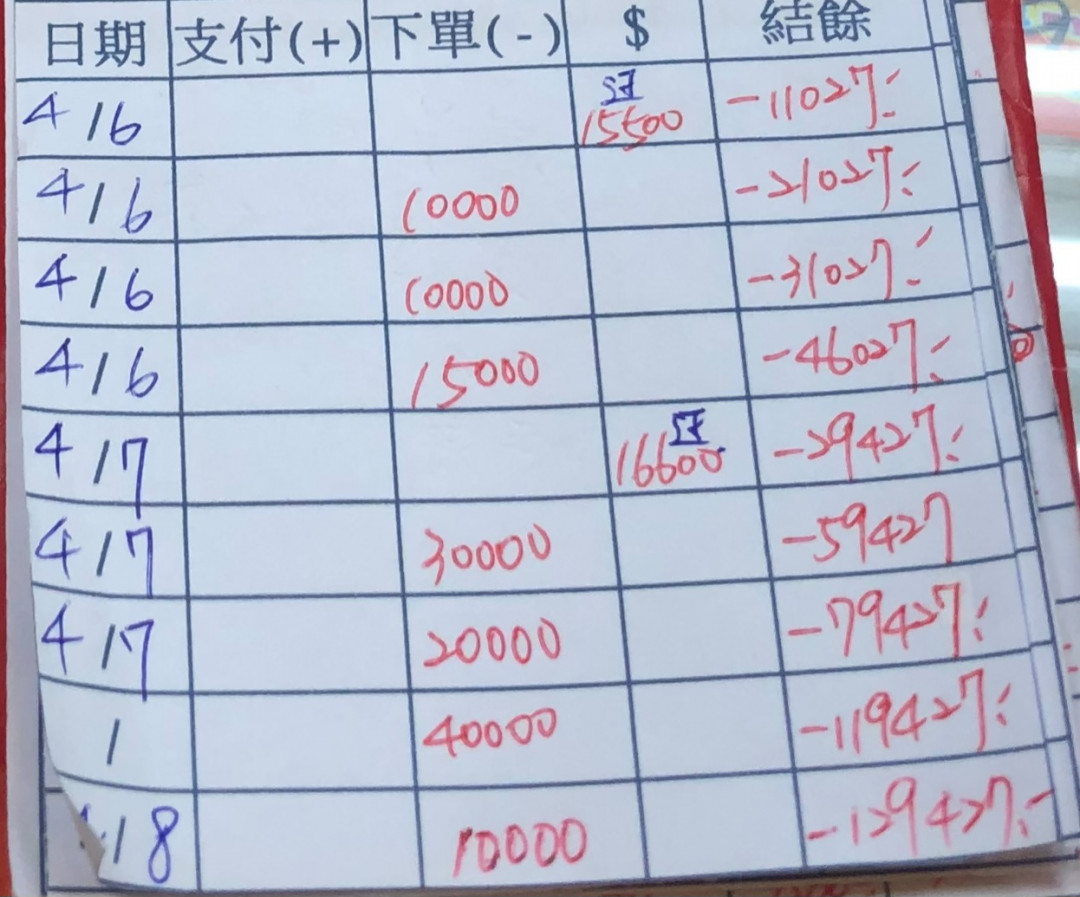 日期 支付(+) 下單(-) $ 結餘
4 16 15500 -11027
4 16 10000 -21027
4 16 10000 -31027
4 16 15000 -46027
4 17 16600 -29427
4 17 30000 -59427
4 17 20000 -79427
1 40000 -119427
18 10000 -129427